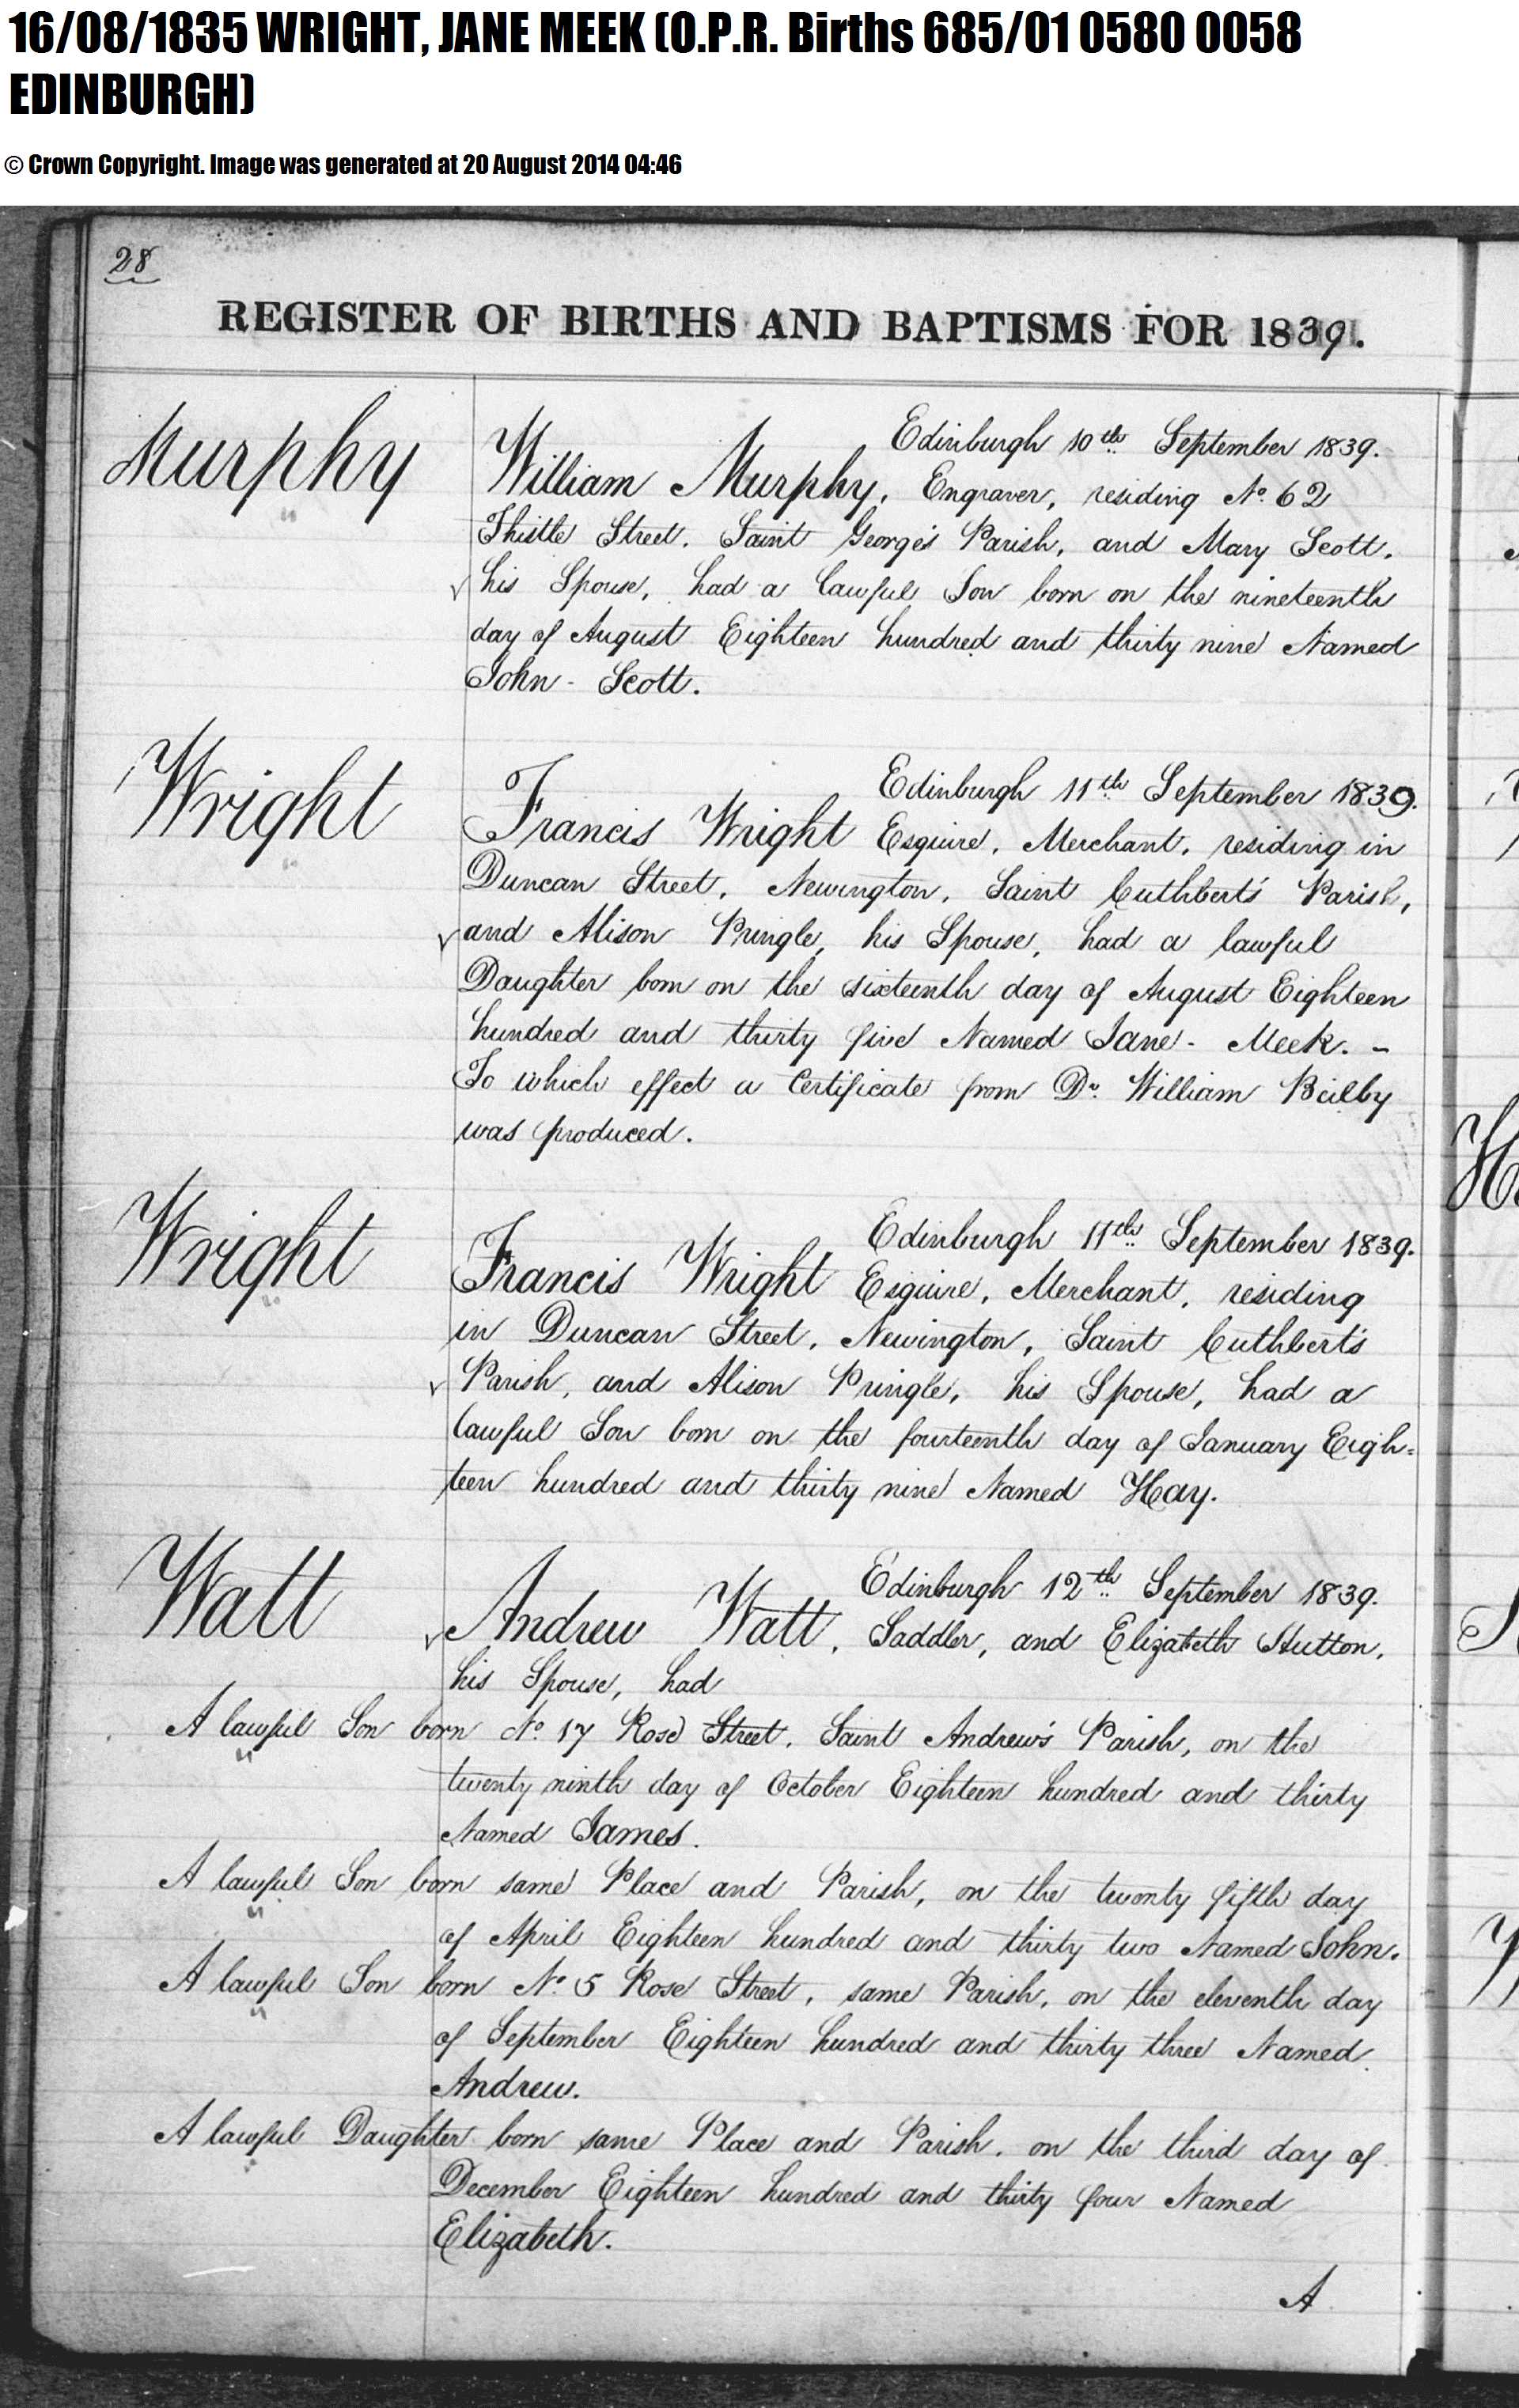 16/08/1835 WRIGHT, JANE MEEK (O.P.R. Births 685/01 0580 0058
EDINBURGH)
© Crown Copyright. Image was generated at 20 August 2014 04:46
28
REGISTER OF BIRTHS AND BAPTISMS FOR 1839.
Murphy
Edinburgh 10th September 1839.
William Murphy, Engraver, residing No. 62
Thistle Street. Saint George's Parish, and Mary Scott,
his Spouse, had a lawful Son born on the nineteenth
day of August Eighteen hundred and thirty nine Named
John - Scott.
Wright
Edinburgh 11th September 1839.
Francis Wright Esquire, Merchant, residing in
Duncan Street, Newington, Saint Cuthbert's Parish,
and Alison Pringle, his Spouse, had a lawful
Daughter born on the sixteenth day of August Eighteen
hundred and thirty five Named Jane - Meek. -
To which effect a Certificate from Dr. William Beilby
was produced.
Wright
Edinburgh 11th September 1839.
Francis Wright Esquire, Merchant, residing
in Duncan Street, Newington, Saint Cuthbert's
Parish, and Alison Pringle, his Spouse, had a
lawful Son born on the fourteenth day of January Eigh=
teen hundred and thirty nine Named Hay.
Watt
Edinburgh 12th September 1839.
Andrew Watt, Saddler, and Elizabeth Hutton,
his Spouse, had
A lawful Son born No. 17 Rose Street, Saint Andrew's Parish, on the
twenty ninth day of October Eighteen hundred and thirty
Named James.
A lawful Son born same Place and Parish, on the twenty fifth day
of April Eighteen hundred and thirty two Named John.
A lawful Son born No. 5 Rose Street, same Parish, on the eleventh day
of September Eighteen hundred and thirty three Named
Andrew.
A lawful Daughter born same Place and Parish, on the third day of
December Eighteen hundred and thirty four Named
Elizabeth.
A